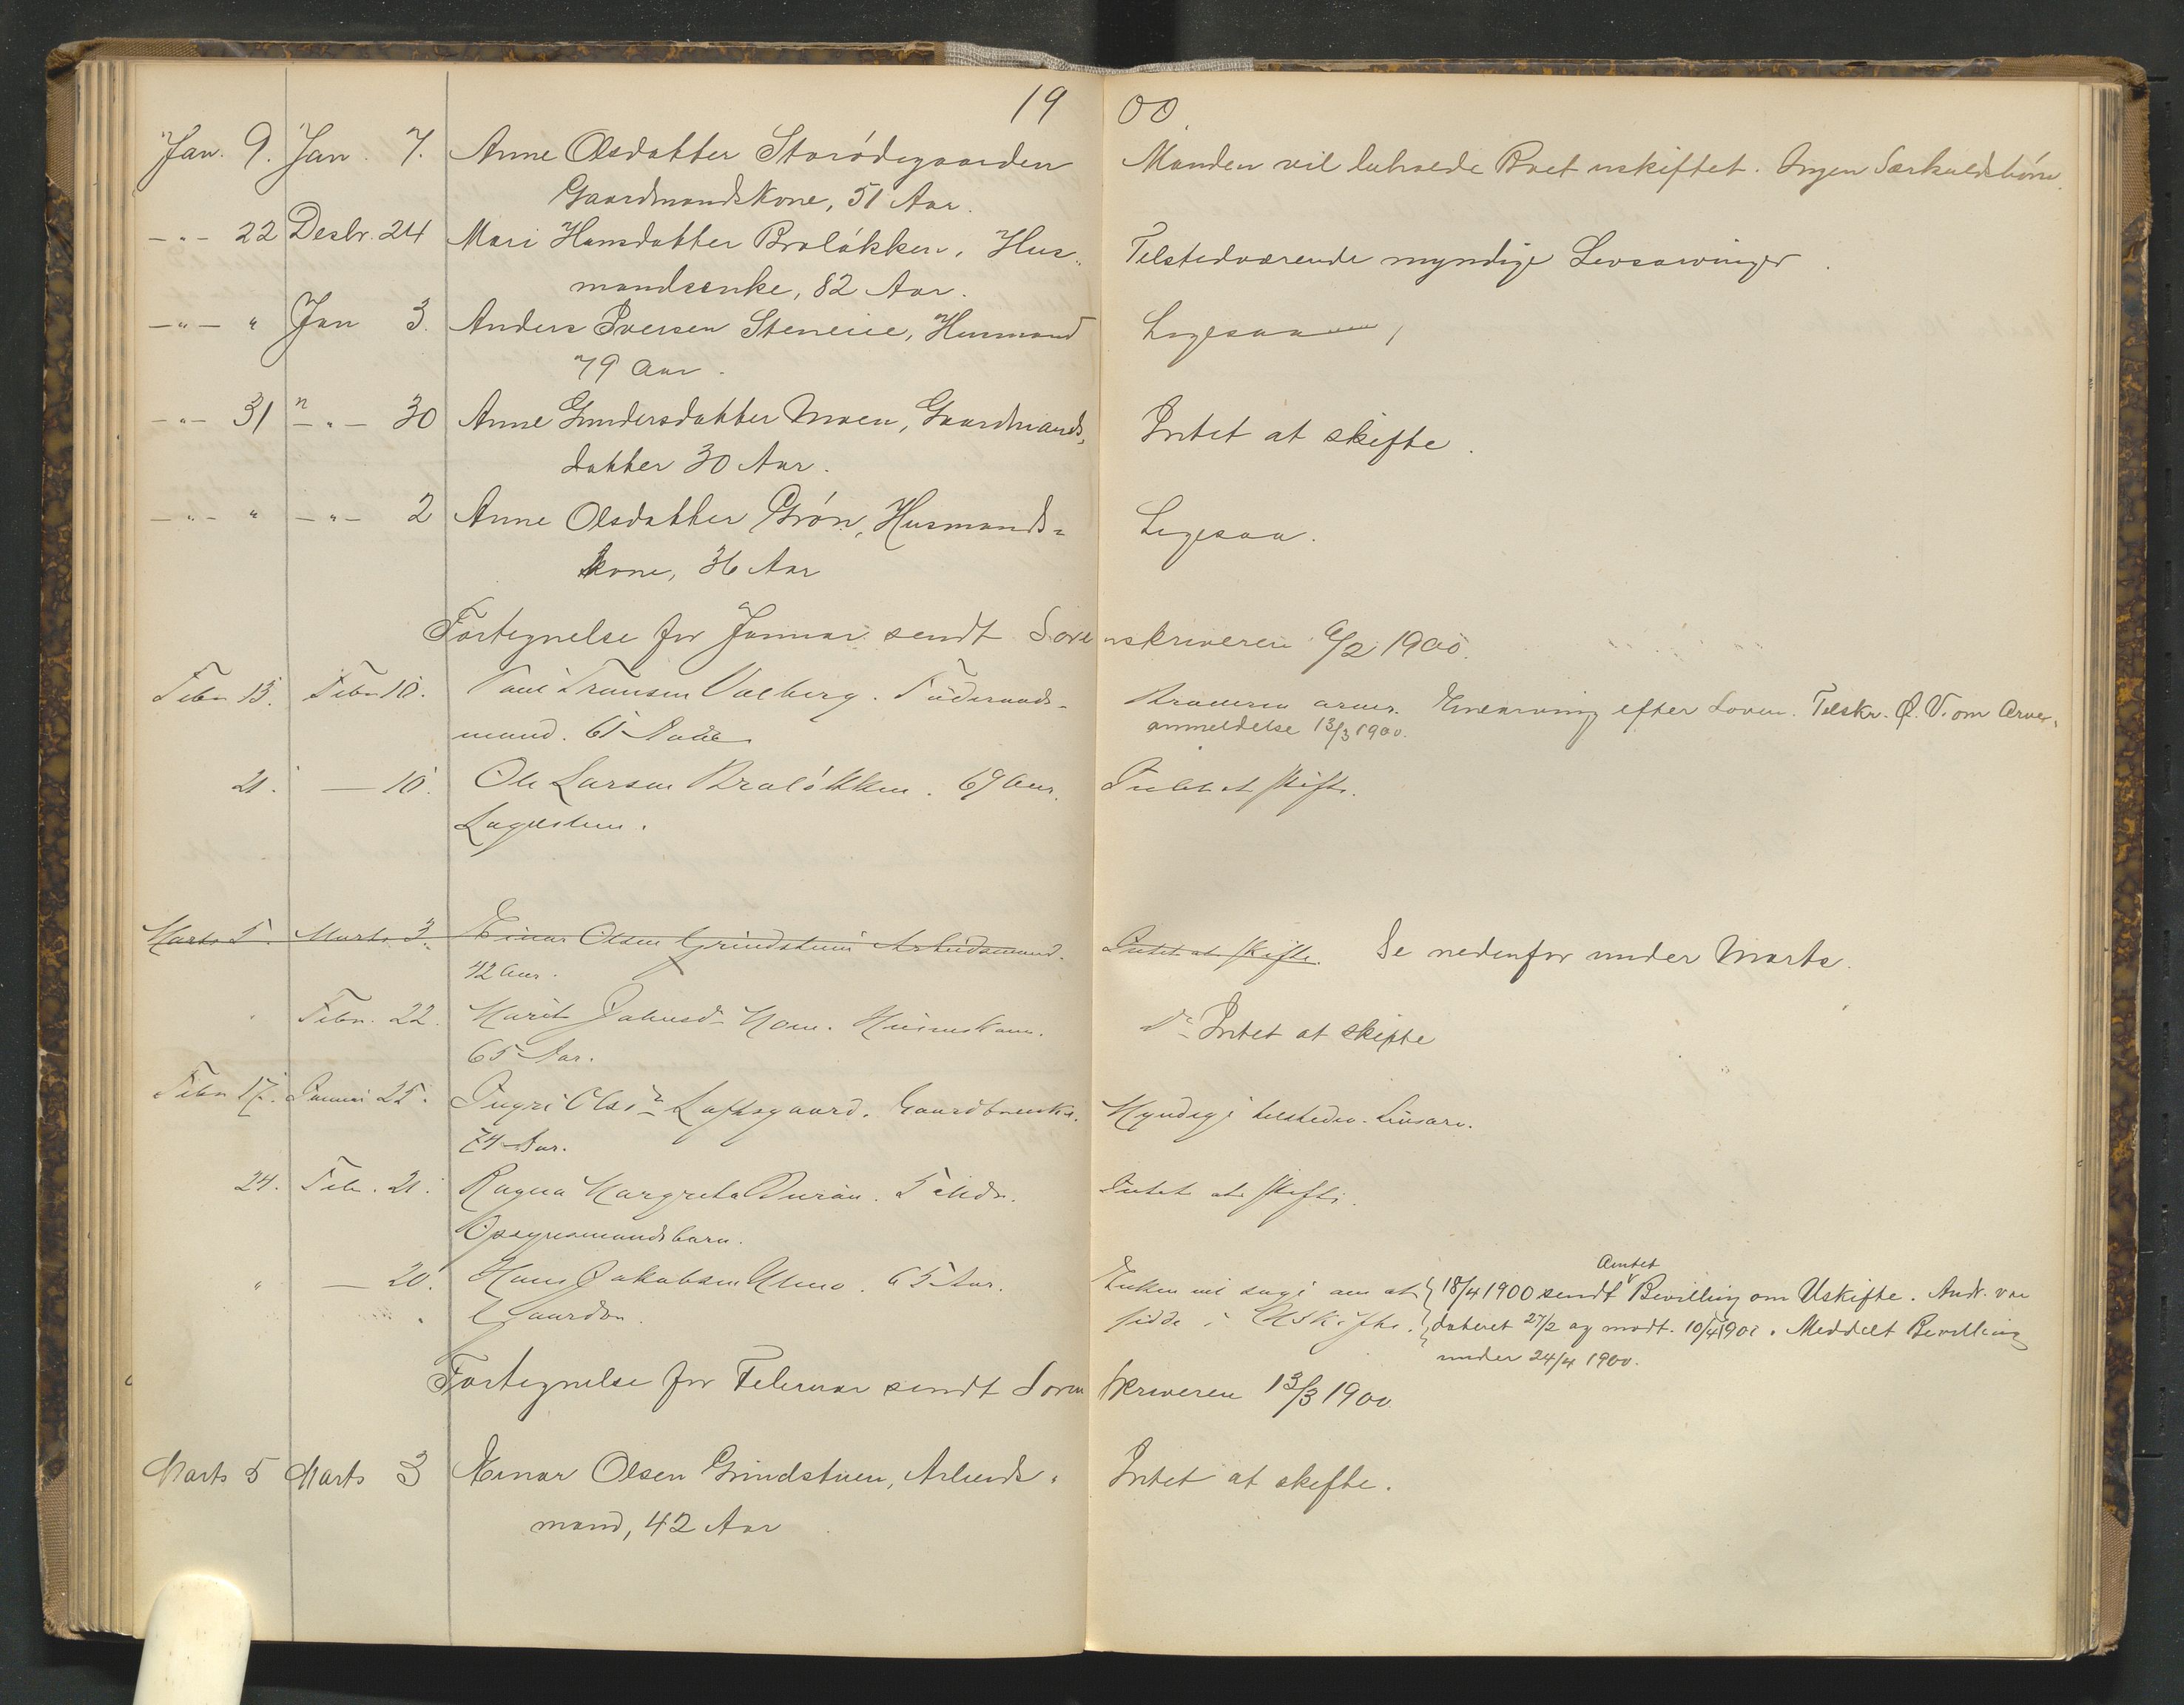 1900
Jan. 9. Jan. 7. Anne Olsdatter Storødegaarden Manden vil behoede Boet uskiftet. Ingen Særkuldsbørn.
Gaardmandskone, 51 Aar.
-"- 22 Desbr. 24 Mari Hansdatter Braløkken, Hus- Tilstedværende myndige Livsarvinger.
mandsenke, 82 Aar.
-"- " Jan 3. Anders Iversen Steneie, Husmand Ligesaa
79 Aar.
-"- 31 -"- 30 Anne Gundersdatter Moen, Gaardmands- Intet at skifte.
datter 30 Aar.
-"- " -"- 2 Anne Olsdatter Grøn, Husmands- Ligesaa.
kone, 36 Aar
Fortegnelse for Januar sendt Sorenskriveren 6/2 1900.
Febr 13. Febr 10. Valberg. Føderaads- arver. Enearving efter Loven. Tilskr. Ø. V. om Arve-
mand. 61 Aar anmeldelse 13/3 1900.
21. — 10. Ole Larsen Braløkken. 69 Aar. Intet at skifte.
Lægdslem.
Marts 5. Marts 3. Einar Olsen Grindstuen Arbeidsmand. Intet at skifte. Se nedenfor under Marts.
42 Aar.
Febr. 22. Marit Moen. Intet at skifte
65 Aar.
Febr 17. Januar 25. Ingri Olsd. Loftsgaard. Myndige tilstedev. Livsarv.
74 Aar.
24. Feb. 21. Ragna Margreta 5 Mdr. Intet at skifte.
Opsynsmandsbarn.
" — 20. Hans Jakobsen 65 Aar. Enken vil søge om at 18/4 1900 sendt Amtet Bevilling om Uskifte. Andr. var
Gaardbr. sidde i Uskifte. dateret 27/2 og modt. 10/4 1900. Meddelt Bevilling
under 24/4 1900.
Fortegnelse for Februar sendt Sorenskriveren 13/3 1900
Marts 5 Marts 3 Einar Olsen Grindstuen, Arbeids- Intet at skifte.
mand, 42 Aar